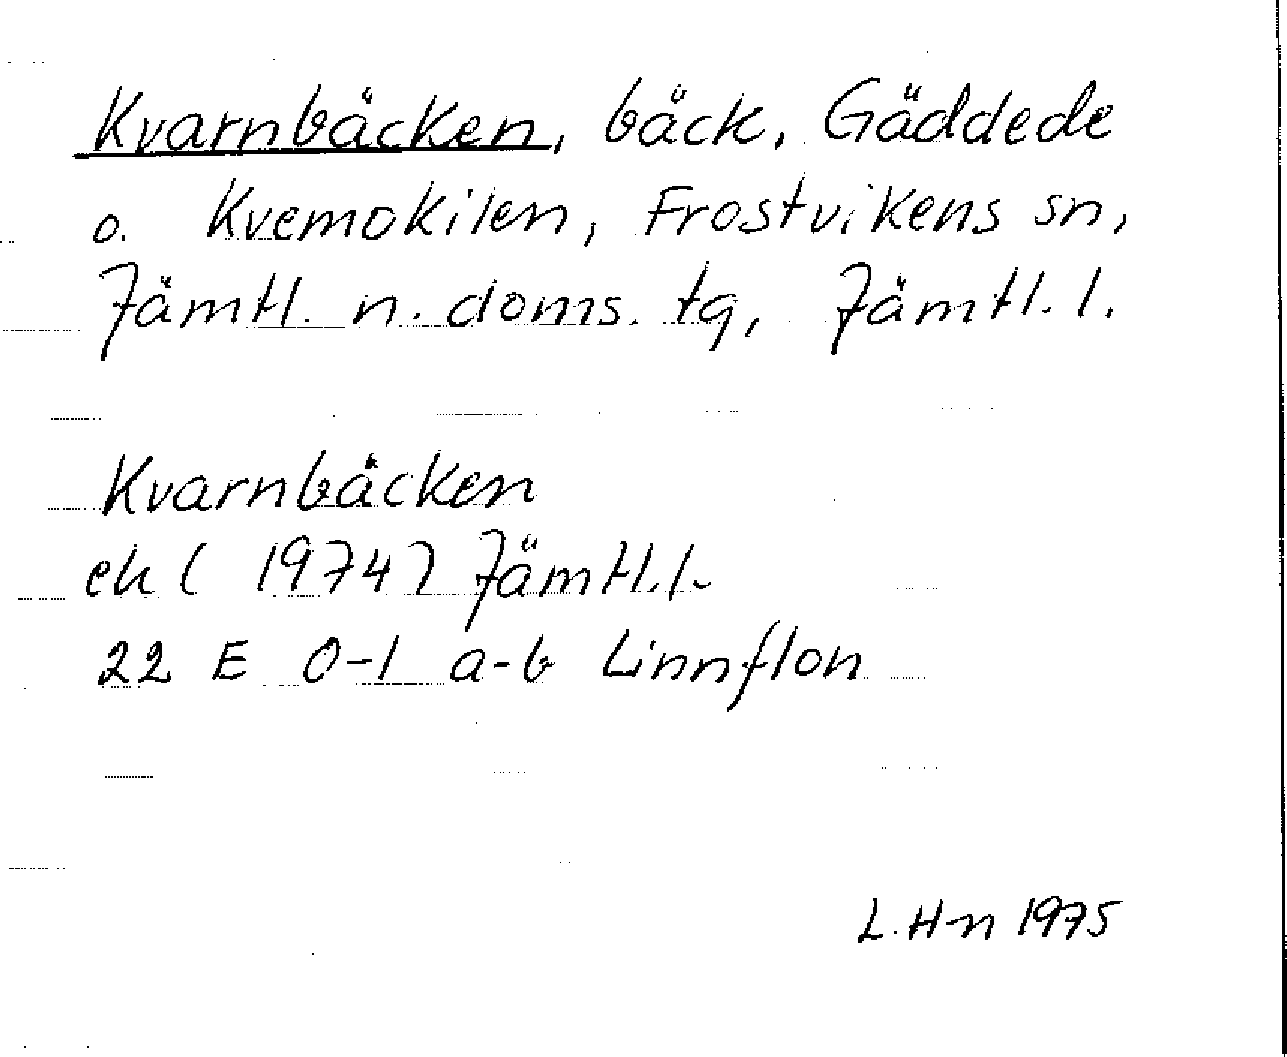 Kvarnbäcken, bäck, Gäddede
o. Kvemokilen, Frostvikens sn,
Jämtl. n. doms. tg, Jämtl. l.
Kvarnbäcken
ek (1974) Jämtl. l.
22 E 0-1 a-b Linnflon
L. H-n 1975